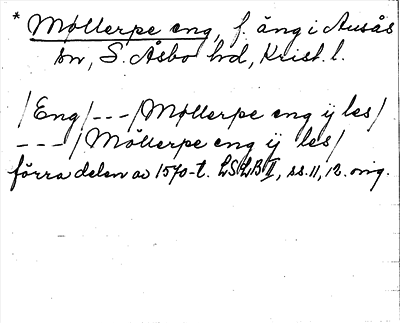 * Møllerpe eng, f. äng i Ausås
sn, S. Åsbo hd, Krist. l.
/Eng/---/Møllerpe eng ij les/
---/Møllerpe eng ij les/
förra delen av 1570-t. LSLB II, ss. 11, 12. orig.